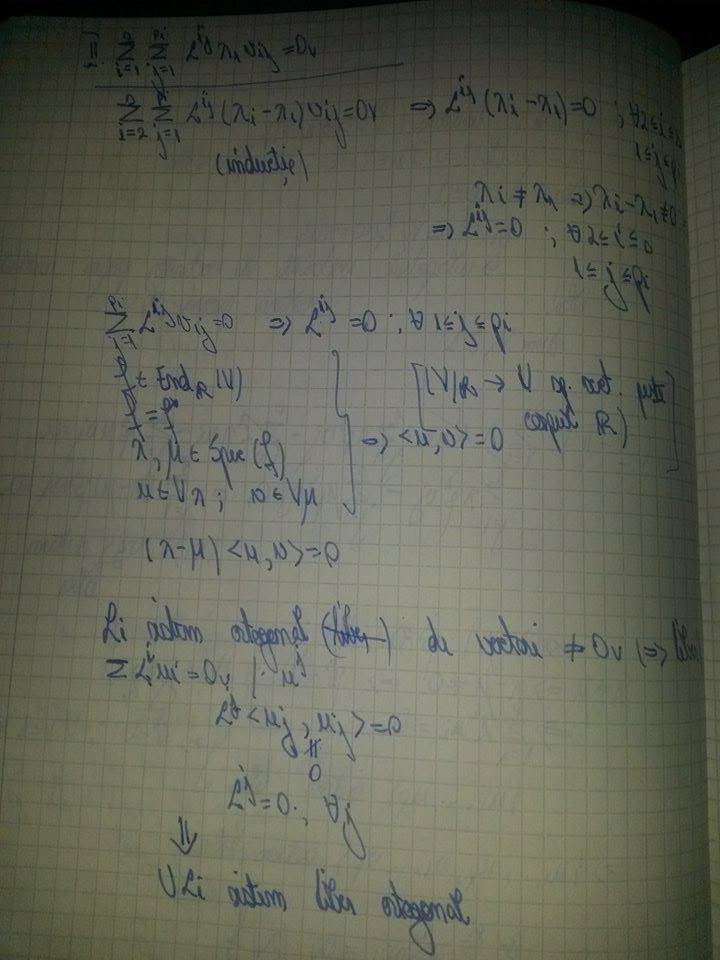 II. $\sum_{i=1}^{s} \sum_{j=1}^{p_i} \alpha^{ij} \lambda_1 v_{ij} = 0_V$
$\sum_{i=2}^{s} \sum_{j=1}^{p_i} \alpha^{ij} (\lambda_i - \lambda_1) v_{ij} = 0_V$ ⇒ $\alpha^{ij} (\lambda_i - \lambda_1) = 0$ ; ∀ 2≤i≤s
(inducție) 1≤j≤pi
λi ≠ λ1 ⇒ λi - λ1 ≠ 0
⇒ $\alpha^{ij}$ = 0 ; ∀ 2≤i≤s
1≤j≤pi
$\sum_{j=1}^{p_i} \alpha^{ij} v_{ij} = 0$ ⇒ $\alpha^{ij}$ = 0 ; ∀ 1≤j≤pi
f ∈ End_R (V) [(V|R → V sp. vect. peste
f = f* corpul R)]
λ, μ ∈ Spec (f) ⇒ <u, v> = 0
u ∈ Vλ ; v ∈ Vμ
(λ-μ) <u, v> = 0
Li sistem ortogonal (liber) de vectori ≠ 0v (⇒ liber
$\sum \alpha^i u_i = 0_V$ | · $u^j$
$\alpha^j$ <uj, uj> = 0
∦
0
$\alpha^j$ = 0 ; ∀j
⇓
∪ Li sistem liber ortogonal